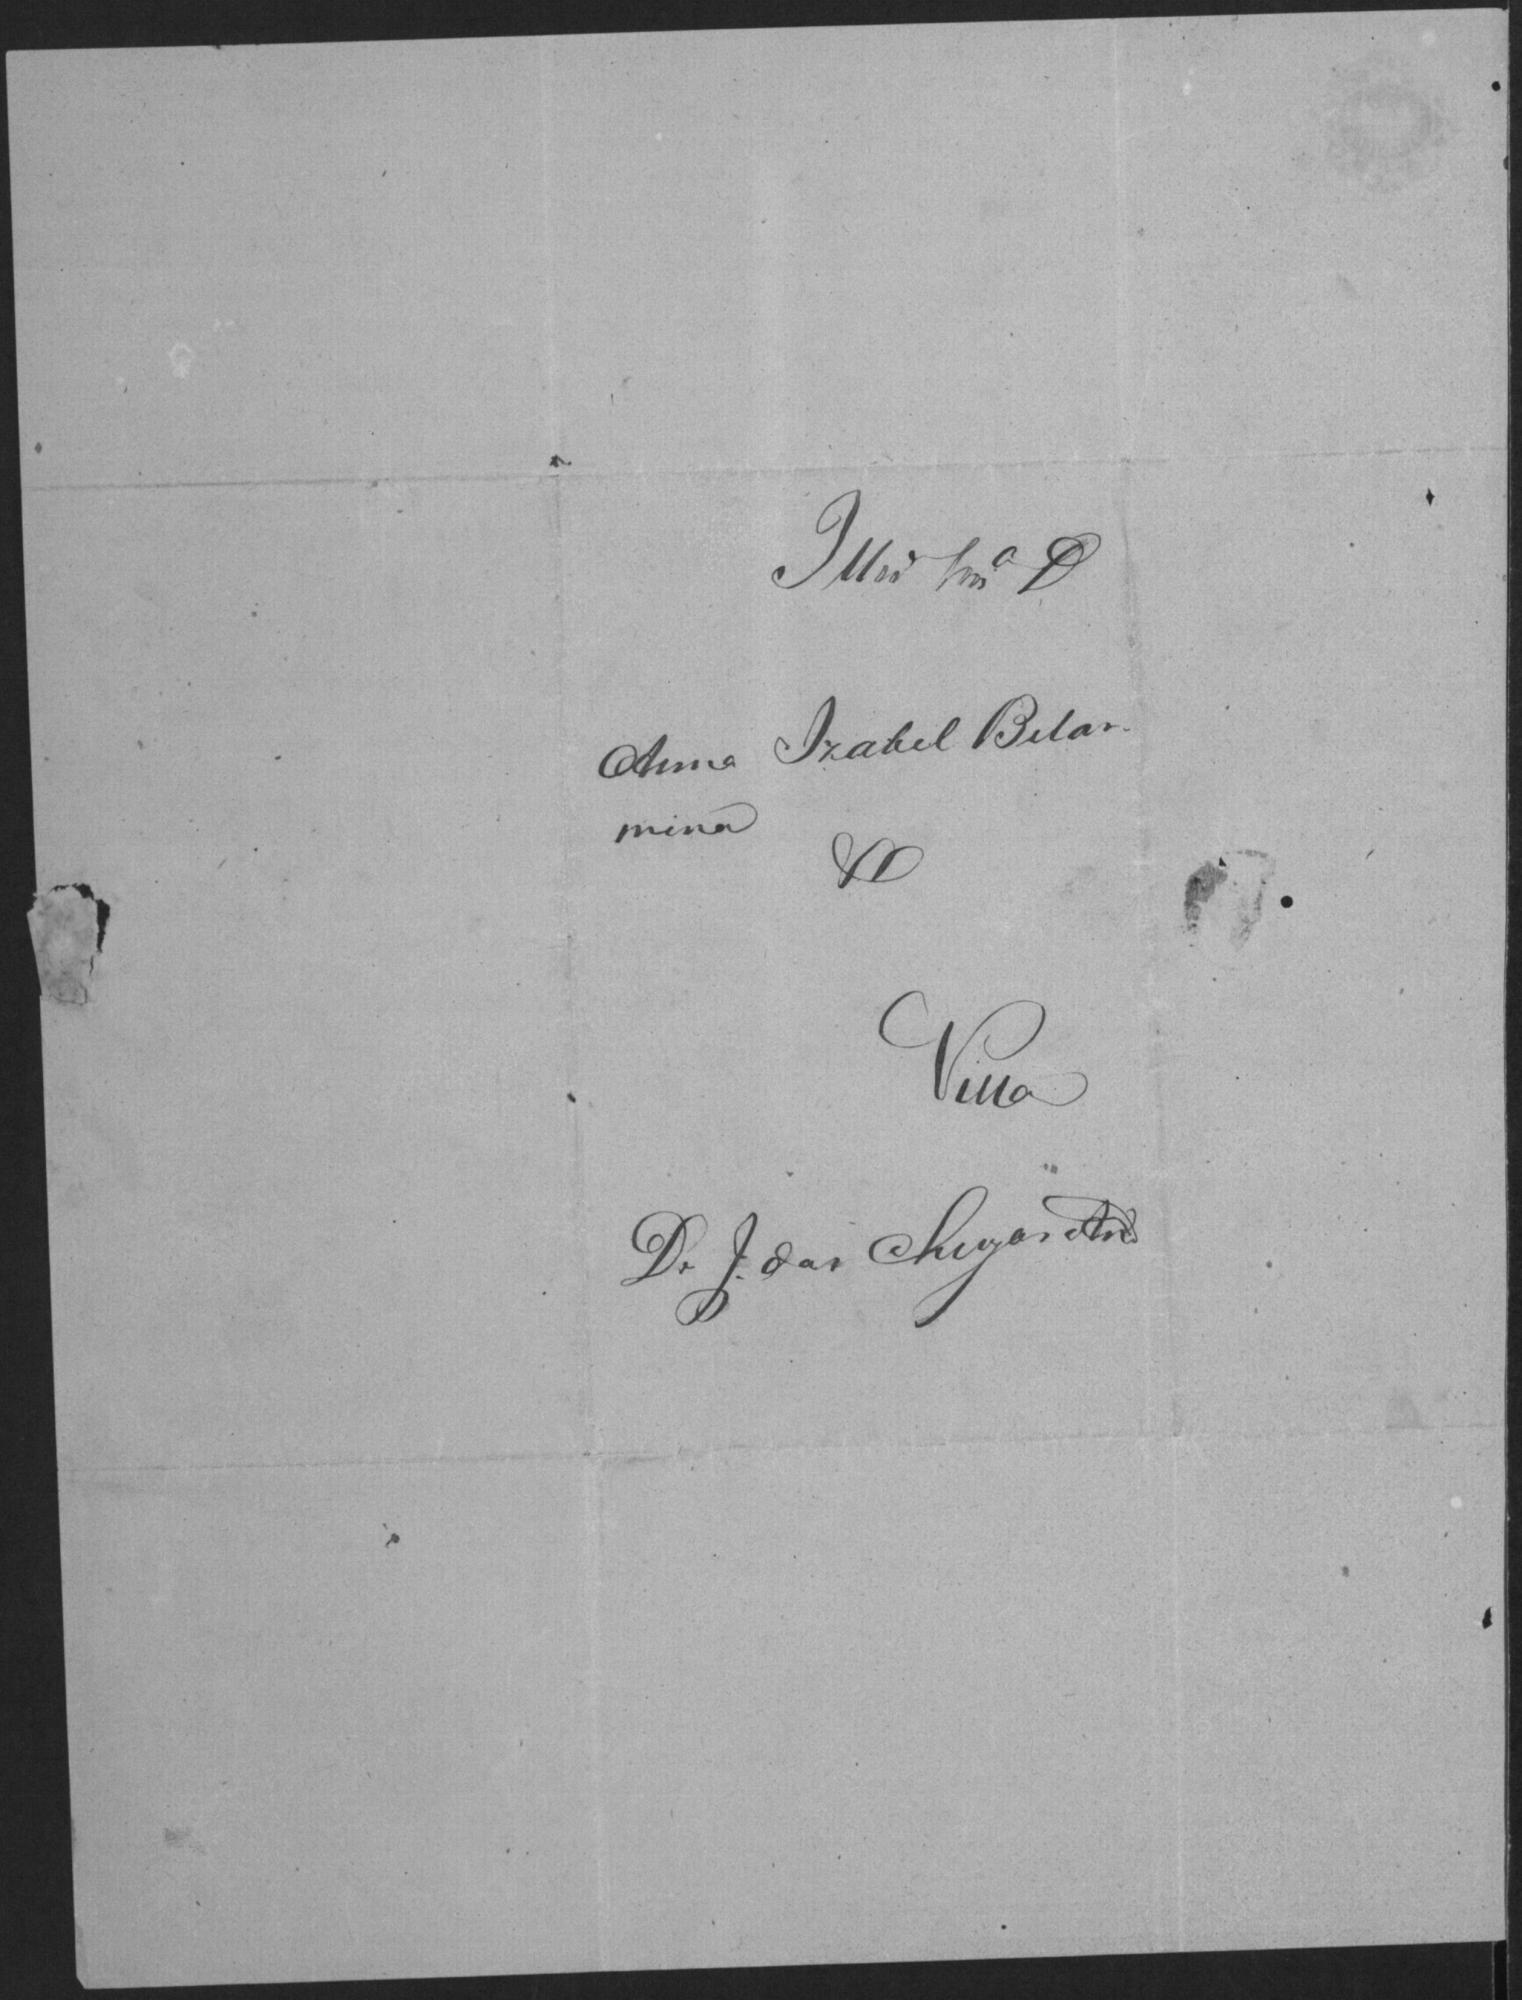 Illma Snra D
Anna Izabel Belar-
mina
&&
Villa
D. J. das Chagas And